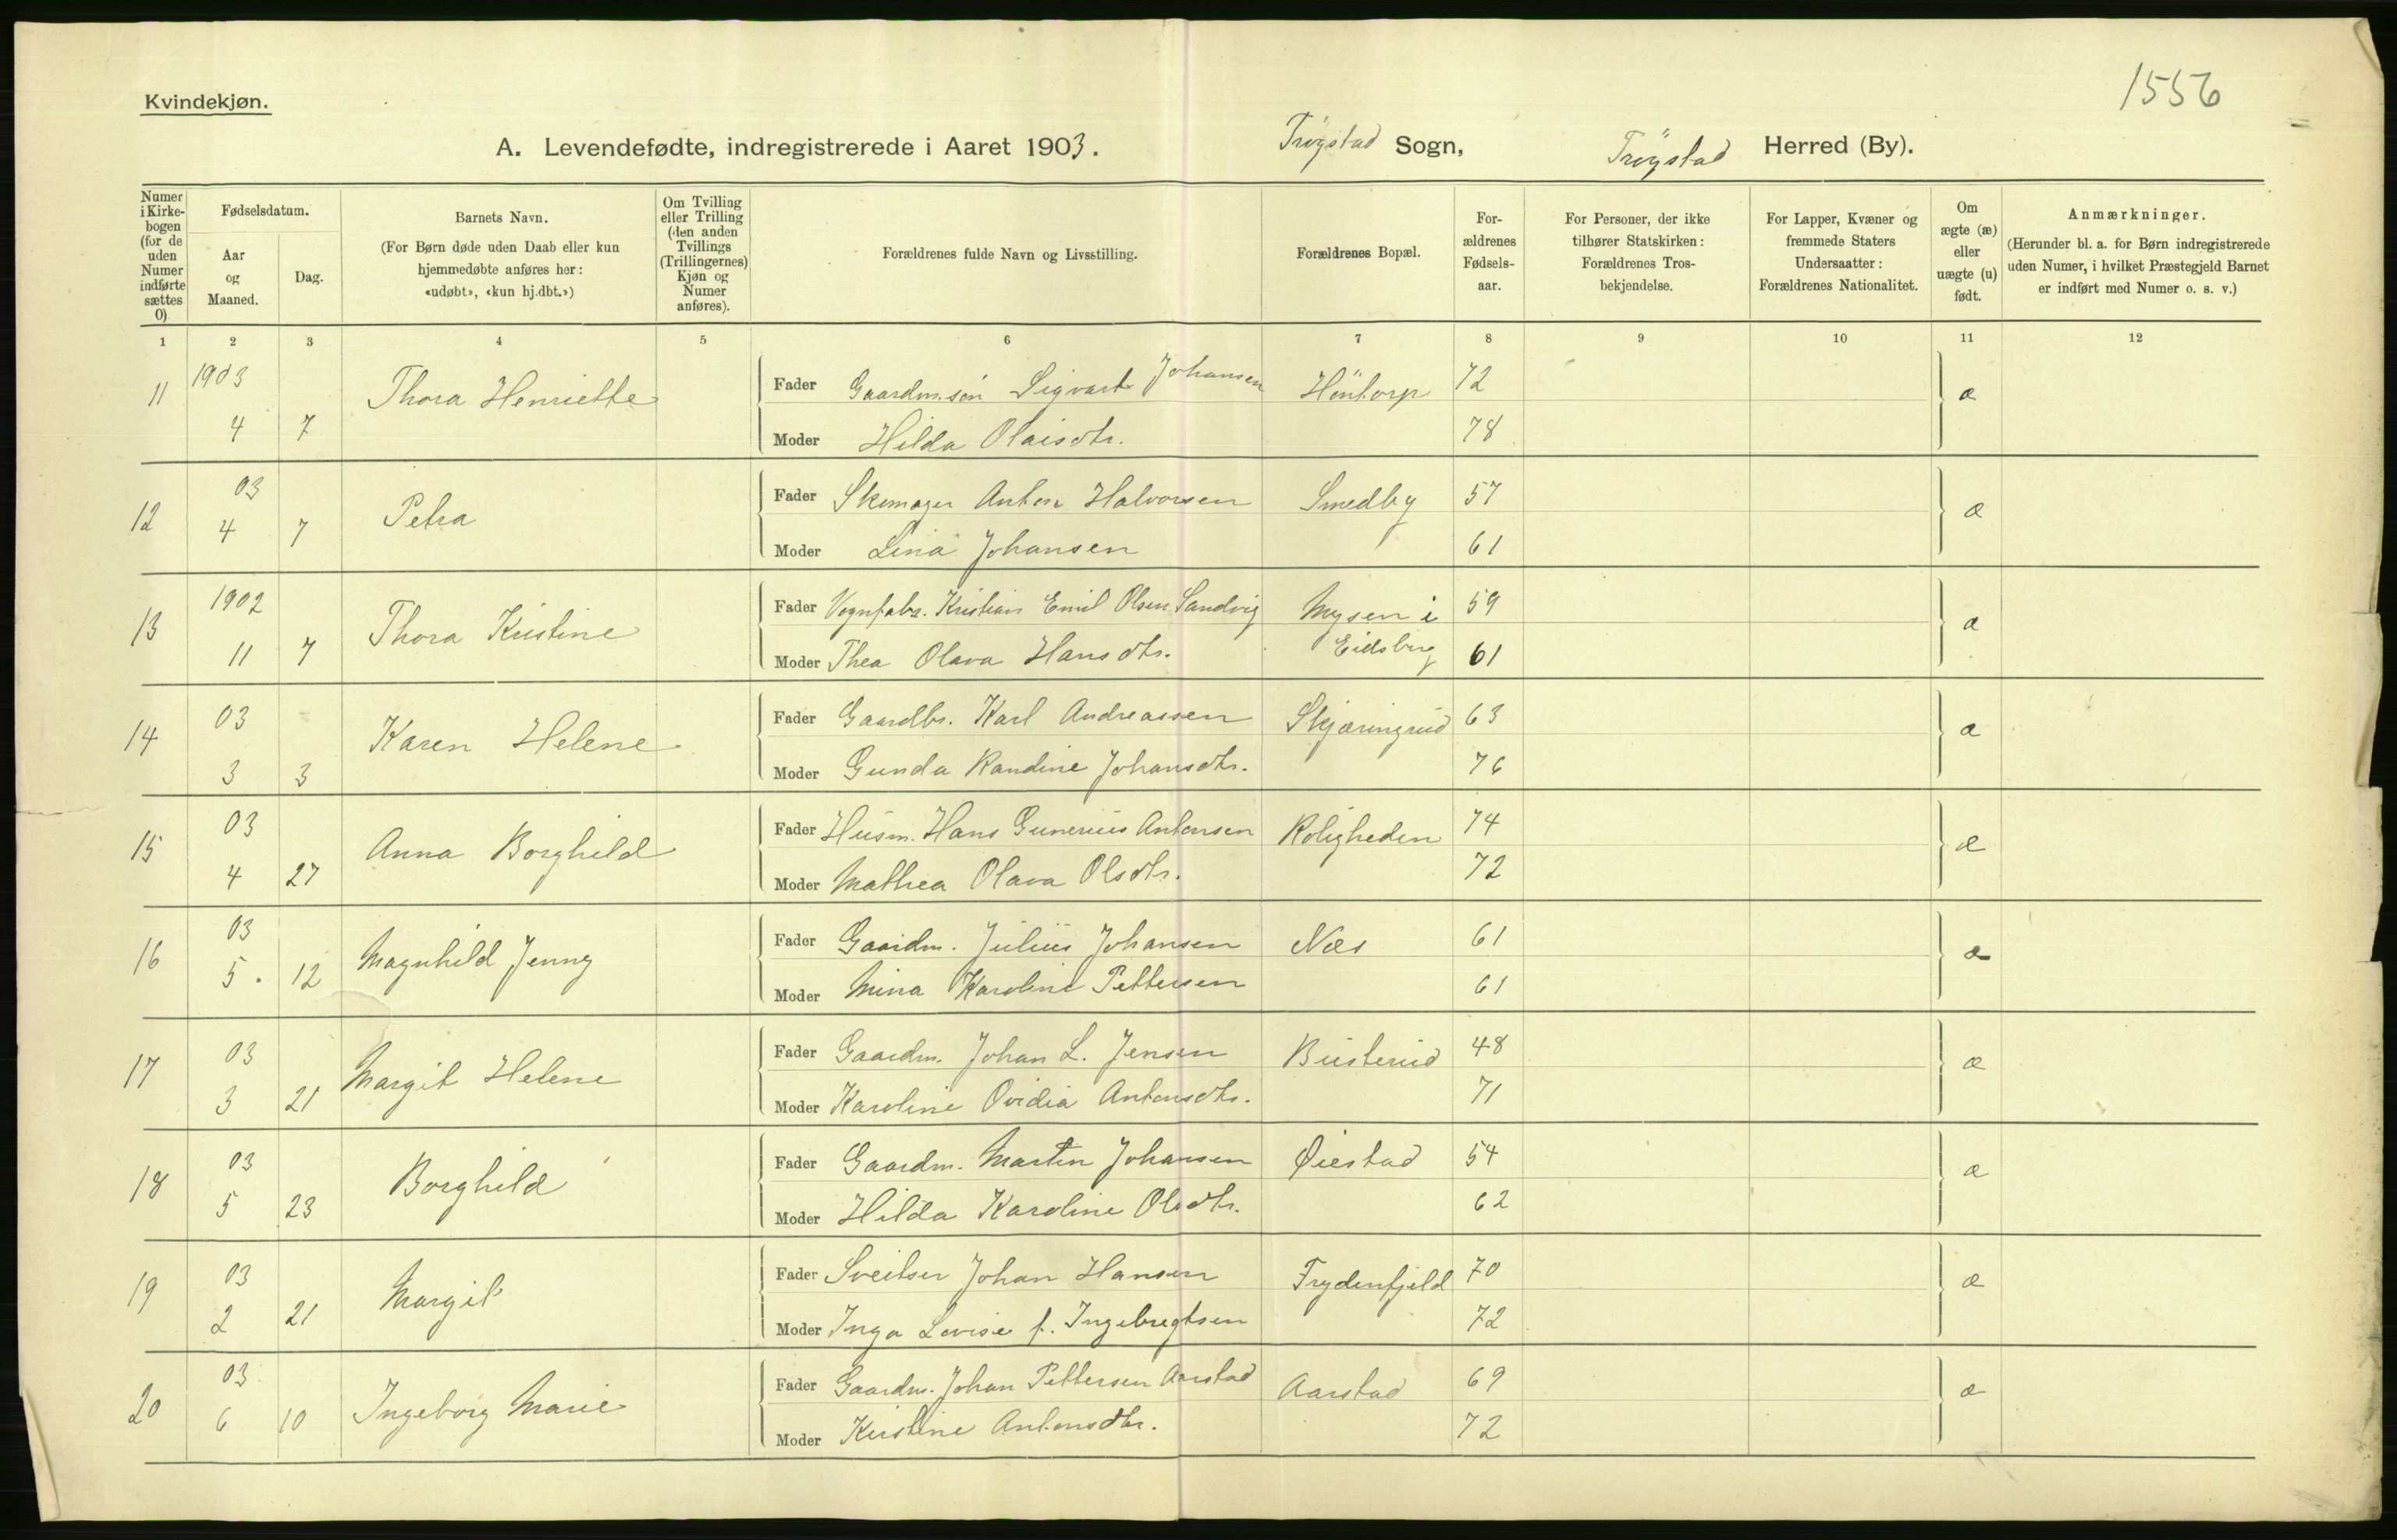 1556
Kvindekjøn.
A. Levendefødte, indregistrerede i Aaret 1903. Trøgstad Sogn, Trøgstad Herred (By).
Numer i Kirkebogen (for de uden Numer indførte sættes 0)
Fødselsdatum.
Aar og Maaned.
Dag.
Barnets Navn.
(For Børn døde uden Daab eller kun hjemmedøbte anføres her: «udøbt», «kun hj.dbt.»)
Om Tvilling eller Trilling (den anden Tvillings (Trillingernes) Kjøn og Numer anføres).
Forældrenes fulde Navn og Livsstilling.
Forældrenes Bopæl.
Forældrenes Fødselsaar.
For Personer, der ikke tilhører Statskirken: Forældrenes Trosbekjendelse.
For Lapper, Kvæner og fremmede Staters Undersaatter: Forældrenes Nationalitet.
Om ægte (æ) eller uægte (u) født.
Anmærkninger.
(Herunder bl. a. for Børn indregistrerede uden Numer, i hvilket Præstegjeld Barnet er indført med Numer o. s. v.)
1 2 3 4 5 6 7 8 9 10 11 12
11 1903 4 7 Thora Henriette Fader Gaardm.søn Sigvart Johansen Höntorp 72 æ
Moder Hilda Olaisdtr. 78
12 03 4 7 Petra Fader Skomager Anton Halvorsen Smedby 57 æ
Moder Lina Johansen 61
13 1902 11 7 Thora Kristine Fader Vognfabr. Kristian Emil Olsen Sandvig Mysen i 59 æ
Moder Thea Olava Hansdtr. Eidsberg 61
14 03 3 3 Karen Helene Fader Gaardbr. Karl Andreassen Skjæringrud 63 æ
Moder Gunda Randine Johansdtr. 76
15 03 4 27 Anna Borghild Fader Husm. Hans Gunerius Antonsen Roligheden 74 æ
Moder Mathea Olava Olsdtr. 72
16 03 5. 12 Magnhild Jenny Fader Gaardm. Julius Johansen Næs 61 æ
Moder Mina Karoline Pettersen 61
17 03 3 21 Margit Helene Fader Gaardm. Johan L. Jensen Busterud 48 æ
Moder Karoline Ovidia Antonsdtr. 71
18 03 5 23 Borghild Fader Gaardm. Martin Johansen Øiestad 54 æ
Moder Hilda Karoline Olsdtr. 62
19 03 2 21 Margit Fader Sveitser Johan Hansen Frydenfjeld 70 æ
Moder Inga Lovise f. Ingebregtsen 72
20 03 6 10 Ingeborg Marie Fader Gaardm. Johan Pettersen Aarstad Aarstad 69 æ
Moder Kristine Antonsdtr. 72